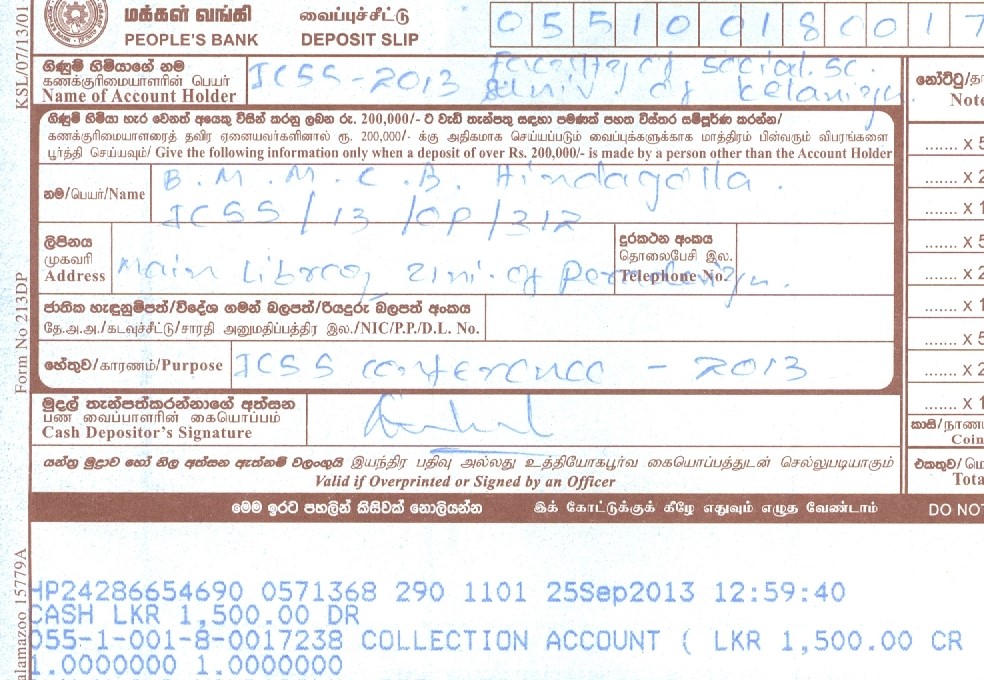 மக்கள் வங்கி
PEOPLE'S BANK
வைப்புச்சீட்டு
DEPOSIT SLIP
0 5 5 1 0 0 1 8 0 0 1 7
KSL/07/13/01
ගිණුම් හිමියාගේ නම
கணக்குரிமையாளரின் பெயர்
Name of Account Holder
ICSS-2013 Faculty of Social. Sc.
Univ. of Kelaniya.
ගිණුම් හිමියා හැර වෙනත් අයෙකු විසින් කරනු ලබන රු. 200,000/- ට වැඩි තැන්පතු සඳහා පමණක් පහත විස්තර සම්පූර්ණ කරන්න/
கணக்குரிமையாளரைத் தவிர ஏனையவர்களினால் ரூ. 200,000/- க்கு அதிகமாக செய்யப்படும் வைப்புகளுக்காக மாத்திரம் பின்வரும் விபரங்களை
பூர்த்தி செய்யவும்/ Give the following information only when a deposit of over Rs. 200,000/- is made by a person other than the Account Holder
නම/பெயர்/Name
B. M. M. C. B. Hindagolla.
ICSS/13/OP/312
ලිපිනය
முகவரி
Address
Main Library, Uni. of Peradeniya.
දුරකථන අංකය
தொலைபேசி இல.
Telephone No.
ජාතික හැඳුනුම්පත්/විදේශ ගමන් බලපත්‍ර/රියදුරු බලපත්‍ර අංකය
தே.அ.அ./கடவுச்சீட்டு/சாரதி அனுமதிப்பத்திர இல./NIC/P.P./D.L. No.
හේතුව/காரணம்/Purpose
ICSS conference - 2013
Form No 213DP
මුදල් තැන්පත්කරන්නාගේ අත්සන
பண வைப்பாளரின் கையொப்பம்
Cash Depositor's Signature
යන්ත්‍ර මුද්‍රාව හෝ නිල අත්සන ඇත්නම් වලංගුයි இயந்திர பதிவு அல்லது உத்தியோகபூர்வ கையொப்பத்துடன் செல்லுபடியாகும்
Valid if Overprinted or Signed by an Officer
මෙම ඉරට පහලින් කිසිවක් නොලියන්න இக் கோட்டுக்குக் கீழே எதுவும் எழுத வேண்டாம் DO NOT
නෝට්ටු/
Note
....... x 5
....... x 2
....... x 1
....... x 5
....... x 2
....... x 1
....... x 5
....... x 2
....... x 1
කාසි/நாண
Coin
එකතුව/
Tota
alamazoo 15779A
HP24286654690 0571368 290 1101 25Sep2013 12:59:40
CASH LKR 1,500.00 DR
055-1-001-8-0017238 COLLECTION ACCOUNT ( LKR 1,500.00 CR
1.0000000 1.0000000